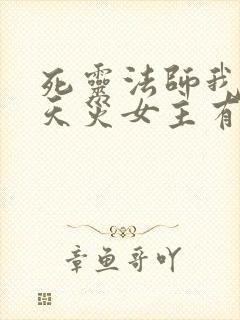 死靈法師我
天災女主有
章魚哥吖